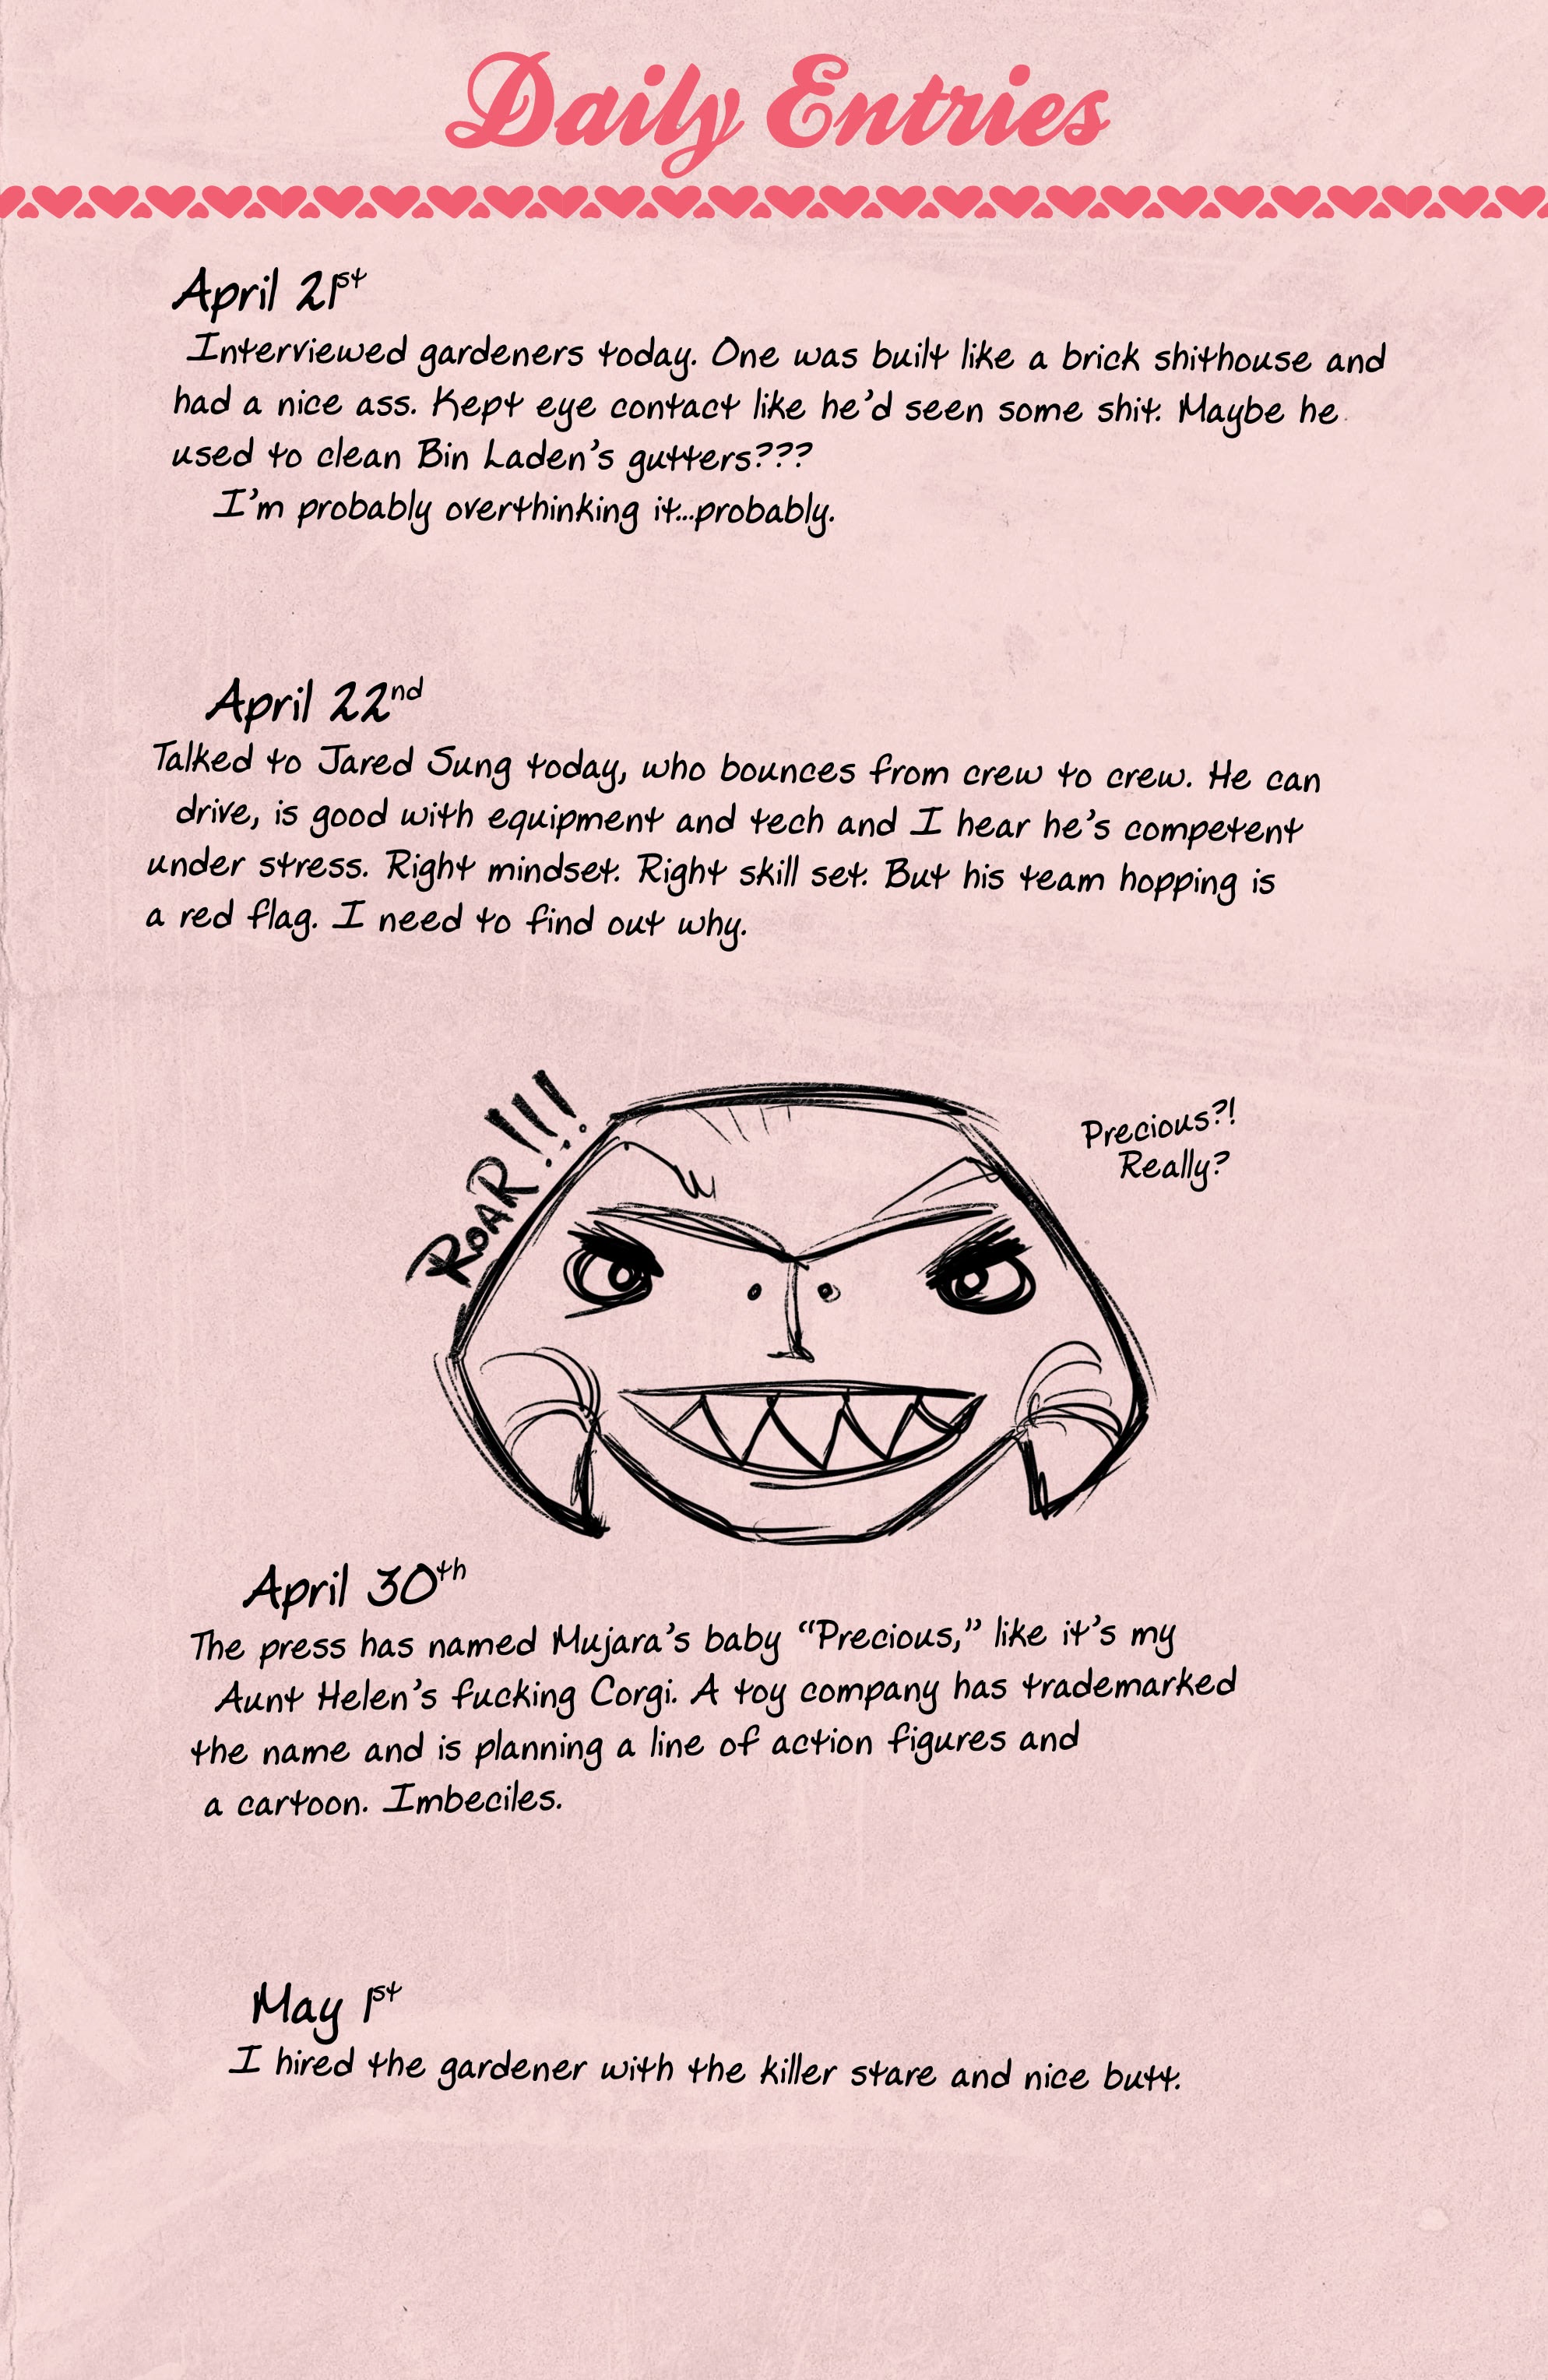 Daily Entries
April 21st
Interviewed gardeners today. One was built like a brick shithouse and
had a nice ass. Kept eye contact like he'd seen some shit. Maybe he
used to clean Bin Laden's gutters???
I'm probably overthinking it...probably.
April 22nd
Talked to Jared Sung today, who bounces from crew to crew. He can
drive, is good with equipment and tech and I hear he's competent
under stress. Right mindset. Right skill set. But his team hopping is
a red flag. I need to find out why.
ROAR!!!
Precious?!
Really?
April 30th
The press has named Mujara's baby “Precious,” like it's my
Aunt Helen's fucking Corgi. A toy company has trademarked
the name and is planning a line of action figures and
a cartoon. Imbeciles.
May 1st
I hired the gardener with the killer stare and nice butt.